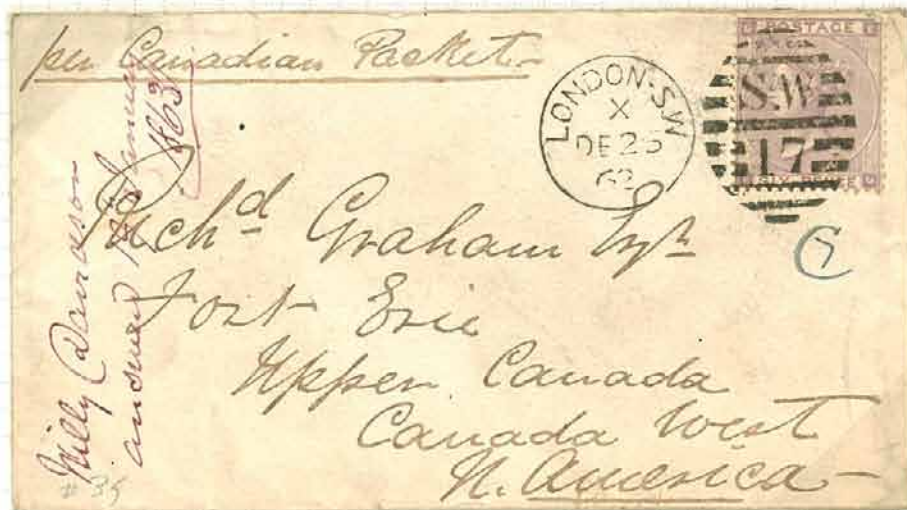 per Canadian Packet
POSTAGE
LONDON·S.W
X
DE 25
62
S.W
17
SIX PENCE
Rich^d Graham Esq^r
Fort Erie
Upper Canada
Canada West
N. America
Milly Davidson
answered January
1863
# 35